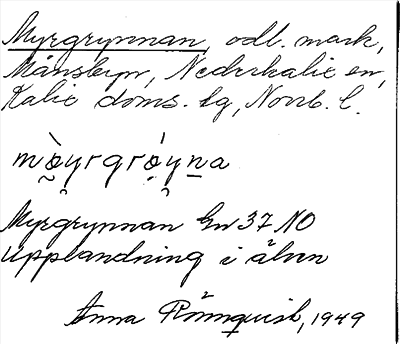 Myrgrynnan, odl. mark,
Månsbyn, Nederkalix sn,
Kalix doms. lg, Norrb. l.
mø̀yrgrǿyna
Myrgrynnan Gn 37 NO
Upplandning i älven
Anna Rönnqvist, 1949